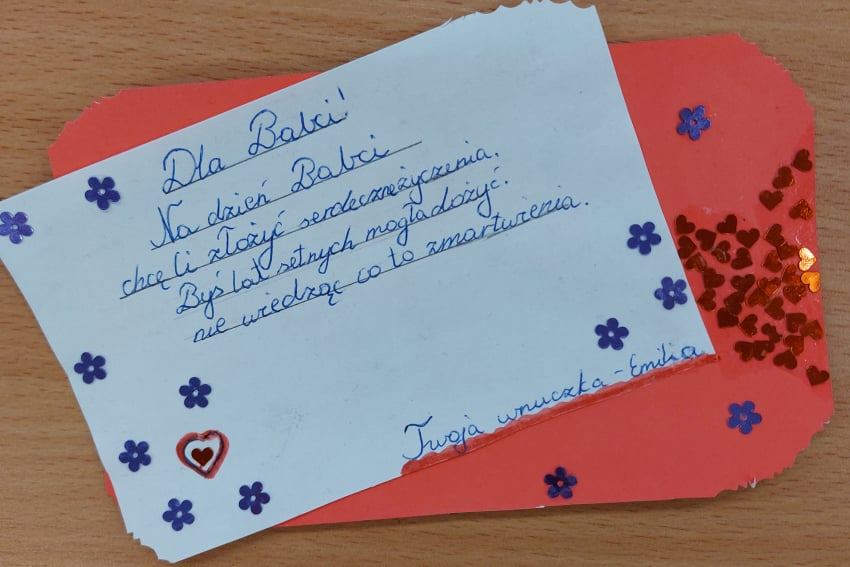 Dla Babci!
Na dzień Babci
chcę Ci złożyć serdeczneżyczenia.
Byś lat setnych mogładożyć.
nie wiedząc co to zmartwienia.
Twoja wnuczka - Emilia